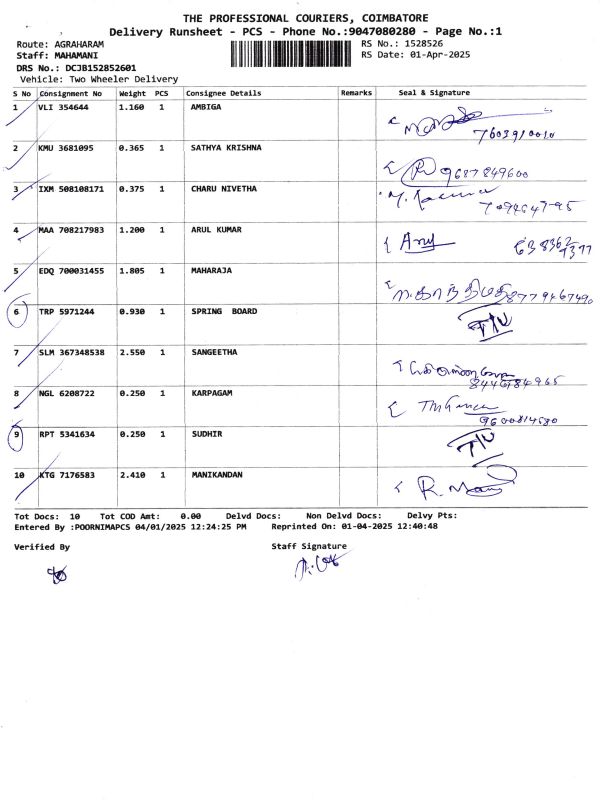 THE PROFESSIONAL COURIERS, COIMBATORE
Delivery Runsheet - PCS - Phone No.:9047080280 - Page No.:1
Route: AGRAHARAM RS No.: 1528526
Staff: MAHAMANI RS Date: 01-Apr-2025
DRS No.: DCJB152852601
Vehicle: Two Wheeler Delivery
S No Consignment No Weight PCS Consignee Details Remarks Seal & Signature
1 VLI 354644 1.160 1 AMBIGA
7603910010
2 KMU 3681095 0.365 1 SATHYA KRISHNA
9687849600
3 IXM 508108171 0.375 1 CHARU NIVETHA
4 MAA 708217983 1.200 1 ARUL KUMAR
5 EDQ 700031455 1.805 1 MAHARAJA
6 TRP 5971244 0.930 1 SPRING BOARD
7 SLM 367348538 2.550 1 SANGEETHA
8446784965
8 NGL 6208722 0.250 1 KARPAGAM
9600814580
9 RPT 5341634 0.250 1 SUDHIR
10 KTG 7176583 2.410 1 MANIKANDAN
Tot Docs: 10 Tot COD Amt: 0.00 Delvd Docs: Non Delvd Docs: Delvy Pts:
Entered By :POORNIMAPCS 04/01/2025 12:24:25 PM Reprinted On: 01-04-2025 12:40:48
Verified By Staff Signature